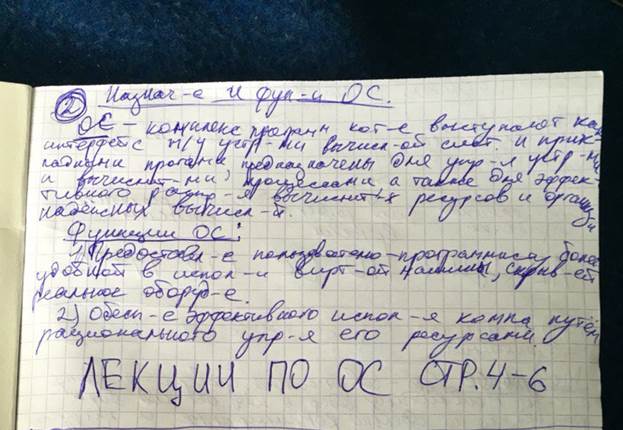 2 Назнач-е и фун-и ОС.
ОС – комплекс программ кот-е выступают как
интерфейс м/у устр-ми вычисл-ой сист. и прик-
ладными прогами предназначены для упр-я устр-ми
и вычислит-ми, процессами а также для эффек-
тивного вычислит-х ресурсов и
надёжных вычисл-й.
Функции ОС:
1) Предоставл-е пользователю-программиста более
удобной в испол-и вирт-ой машины, скрыв-ей
реальное оборуд-е.
2) Обесп-е эффективного испол-я компа путём
рационального упр-я его ресурсами.
ЛЕКЦИИ ПО ОС СТР. 4-6